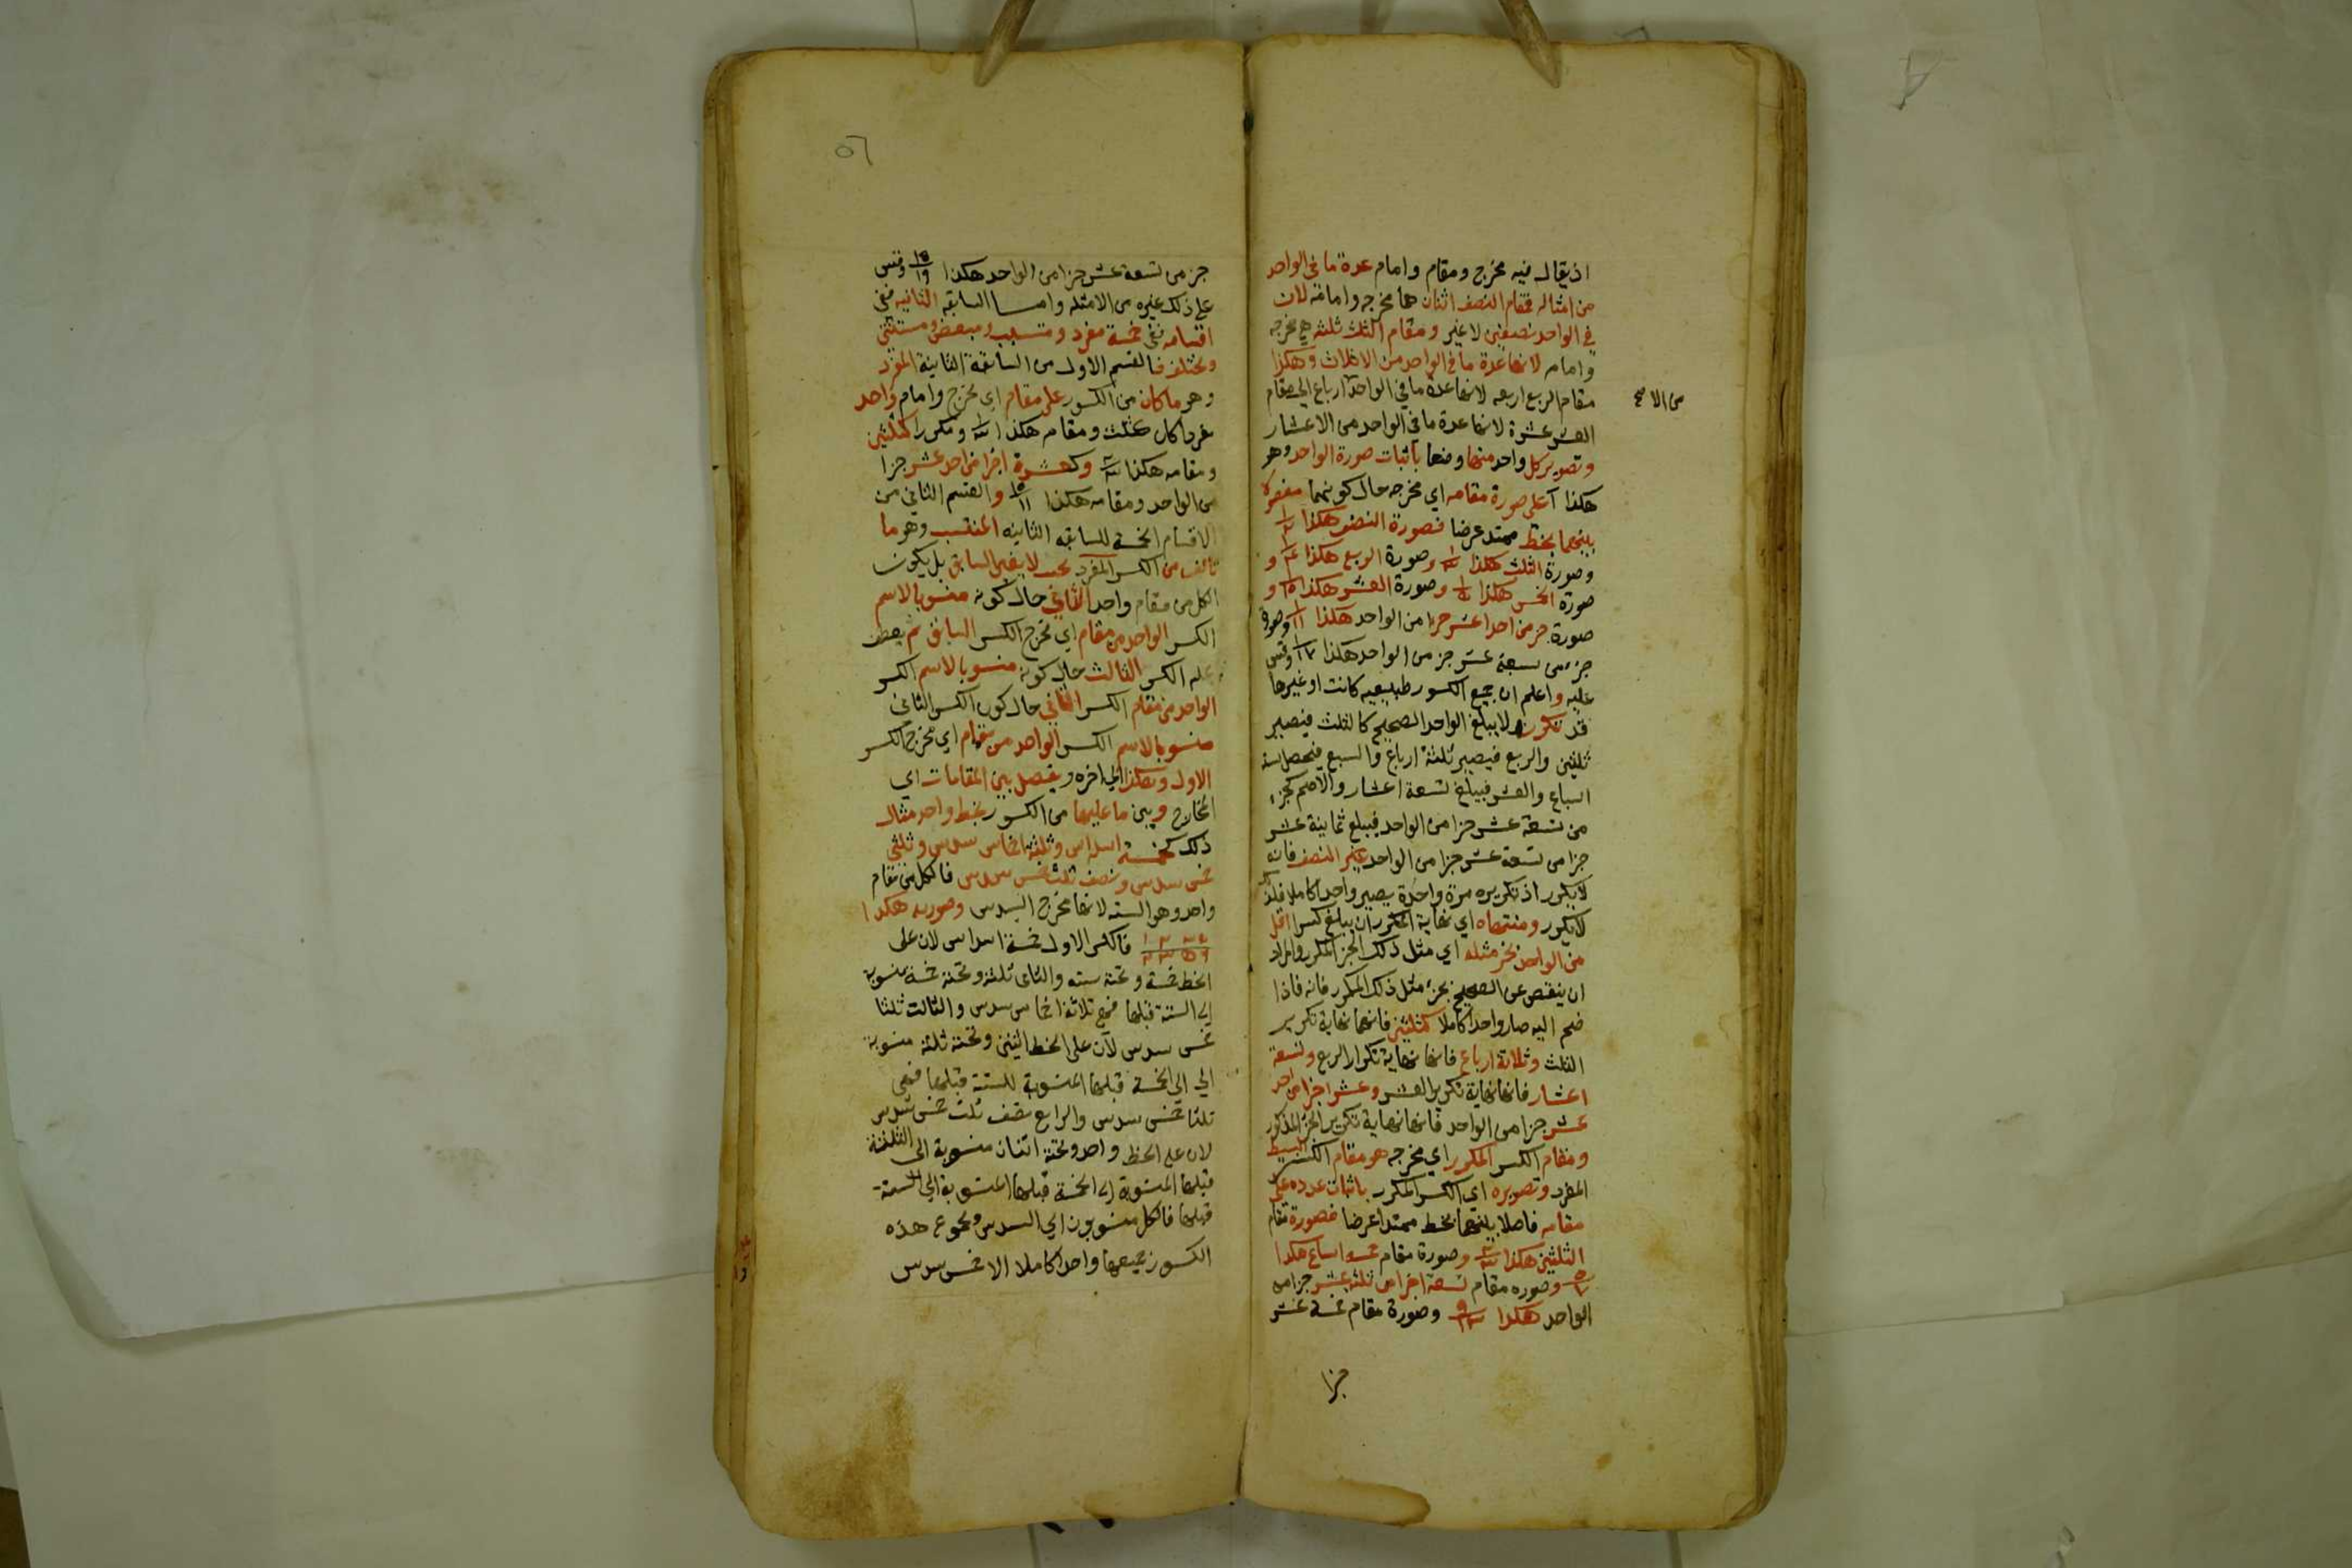 اذ يقال فيه مخرج ومقام وامام عدة ما فى الواحد
من امثاله فمقام النصف اثنان هما مخرجه وامامه لان
في الواحد نصفين لا غير ومقام الثلث ثلثه هى مخرجه
وامامه لانها عدة ما فى الواحد من الاثلاث وهكذا
مقام الربع اربعه لانها عدة ما فى الواحد ارباع الي مقام
العشر عشرة لانها عدة ما فى الواحد من الاعشار
وتصوير كل واحد منها وضعا باثبات صورة الواحد وهو
هكذا ا على صورة مقامه اي مخرجه حال كونهما مفصولا
بينهما بخط ممتد عرضا فصورة النصف هكذا ١/٢
وصورة الثلث هكذا ١/٣ وصورة الربع هكذا ١/٤ و
صورة الخمس هكذا ١/٥ وصورة العشر هكذا ١/١٠ و
صورة جز من احد عشر جزا من الواحد هكذا ١/١١ وصورة
جزء من سبعة عشر جز من الواحد هكذا ١/١٧ وقس
عليه واعلم ان جميع الكسور طبيعيه كانت او غيرها
قد تكون ولا يبلغ الواحد الصحيح كالثلث فيصير
ثلثين والربع فيصير ثلثة ارباع والسبع فيحصل ستة
اسباع والعشر فيبلغ تسعة اعشار والاصم كجزء
من تسعة عشر جزا من الواحد فيبلغ ثمانية عشر
جزا من تسعة عشر جزا من الواحد غير النصف فانه
لا يكرر اذ تكريره مرة واحدة يصير واحدا كاملا فلذلك
لا يكرر ومنتهاه اي نهاية المكرر ان يبلغ كسرا اقل
من الواحد بجز مثله اي مثل ذلك الجز المكرر والمراد
ان ينقص عن الصحيح بجزء مثل ذلك المكرر فانه فاذا
ضم اليه صار واحدا كاملا كثلثين فانهما نهاية تكرير
الثلث وثلاثة ارباع فانها نهاية تكرار الربع وتسعة
اعشار فانها نهاية تكرير العشر وعشر اجزا من احد
عشر جزا من الواحد فانها نهاية تكرير الجز المذكور
ومقام الكسر المكرر اي مخرجه هو مقام الكسر البسيط
المفرد وتصويره اي الكسر المكرر باثبات عدده على
مقامه فاصلا بينهما بخط ممتدا عرضا فصورة مقام
الثلثين هكذا ٢/٣ وصورة مقام خمسة اسباع هكذا
٥/٧ وصوره مقام تسعة اجزا من ثلثة عشر جزا من
الواحد هكذا ٩/١٣ وصورة مقام خمسة عشر
جزا
من الا صح
٥٦
جز من تسعة عشر جزا من الواحد هكذا ١٥/١٩ وقس
على ذلك غيره من الامثله واما السابقه الثانيه ففى
اقسامه فهى خمسة مفرد ومنتسب ومبعض ومستثنى
ومختلف فالقسم الاول من السابقة الثانية المفرد
وهو ما كان من الكسور على مقام اي مخرج وامام واحد
مفردا كان كثلث ومقامه هكذا ١/٣ ومكررا كثلثين
ومقامه هكذا ٢/٣ وكعشرة اجزا من احد عشر جزا
من الواحد ومقامه هكذا ١٠/١١ والقسم الثاني من
الاقسام الخمسة للسابقه الثانيه المنتسب وهو ما
تالف من الكسر المفرد بحيث لا يغير السابق بل يكون
الكل من مقام واحد الثاني حال كونه منسوبا لاسم
الكسر الواحد من مقام اي مخرج الكسر السابق ثم يعطف
عليه الكسر الثالث حال كونه منسوبا لاسم الكسر
الواحد من مقام الكسر الثاني حال كون الكسر الثاني
منسوبا لاسم الكسر الواحد من مقام اي مخرج الكسر
الاول وهكذا الي اخره ويفصل بين المقامات اي
المخارج وبين ما عليها من الكسور بخط واحد مثال
ذلك خمسة اسداس وثلثة اخماس سدس وثلثي
خمس سدس ونصف ثلث خمس سدس فالكل من مقام
واحد وهو الستة لانها مخرج السدس وصورته هكذا
١ ٢ ٣ ٥ / ٢ ٣ ٥ ٦ فالكسر الاول خمسة اسداس لان على
الخط خمسة وتحته سته والثاني ثلثة وتحته خمسة منسوبة
الى الستة قبلها فهى ثلاثة اخماس سدس والثالث ثلثا
خمس سدس لان على الخط اثنين وتحته ثلثه منسوبة
الي الي الخمسة قبلها المنسوبة للستة قبلها فهى
ثلثا خمس سدس والرابع نصف ثلث خمس سدس
لان على الخط واحد وتحته اثنان منسوبة الى الثلثة
قبلها المنسوبة الى الخمسة قبلها المنسوبة الي الستة
قبلها فالكل منسوبون الي السدس ومجموع هذه
الكسور جميعها واحدا كاملا الا خمس سدس